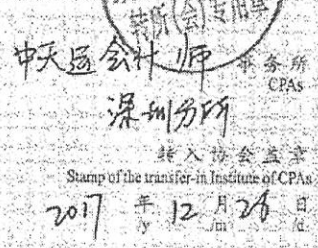 转所(会)专用章
中天运会计师事务所
CPAs
深圳分所
转入协会盖章
Stamp of the transfer-in Institute of CPAs
2017 年 12 月 26 日
/y /m /d